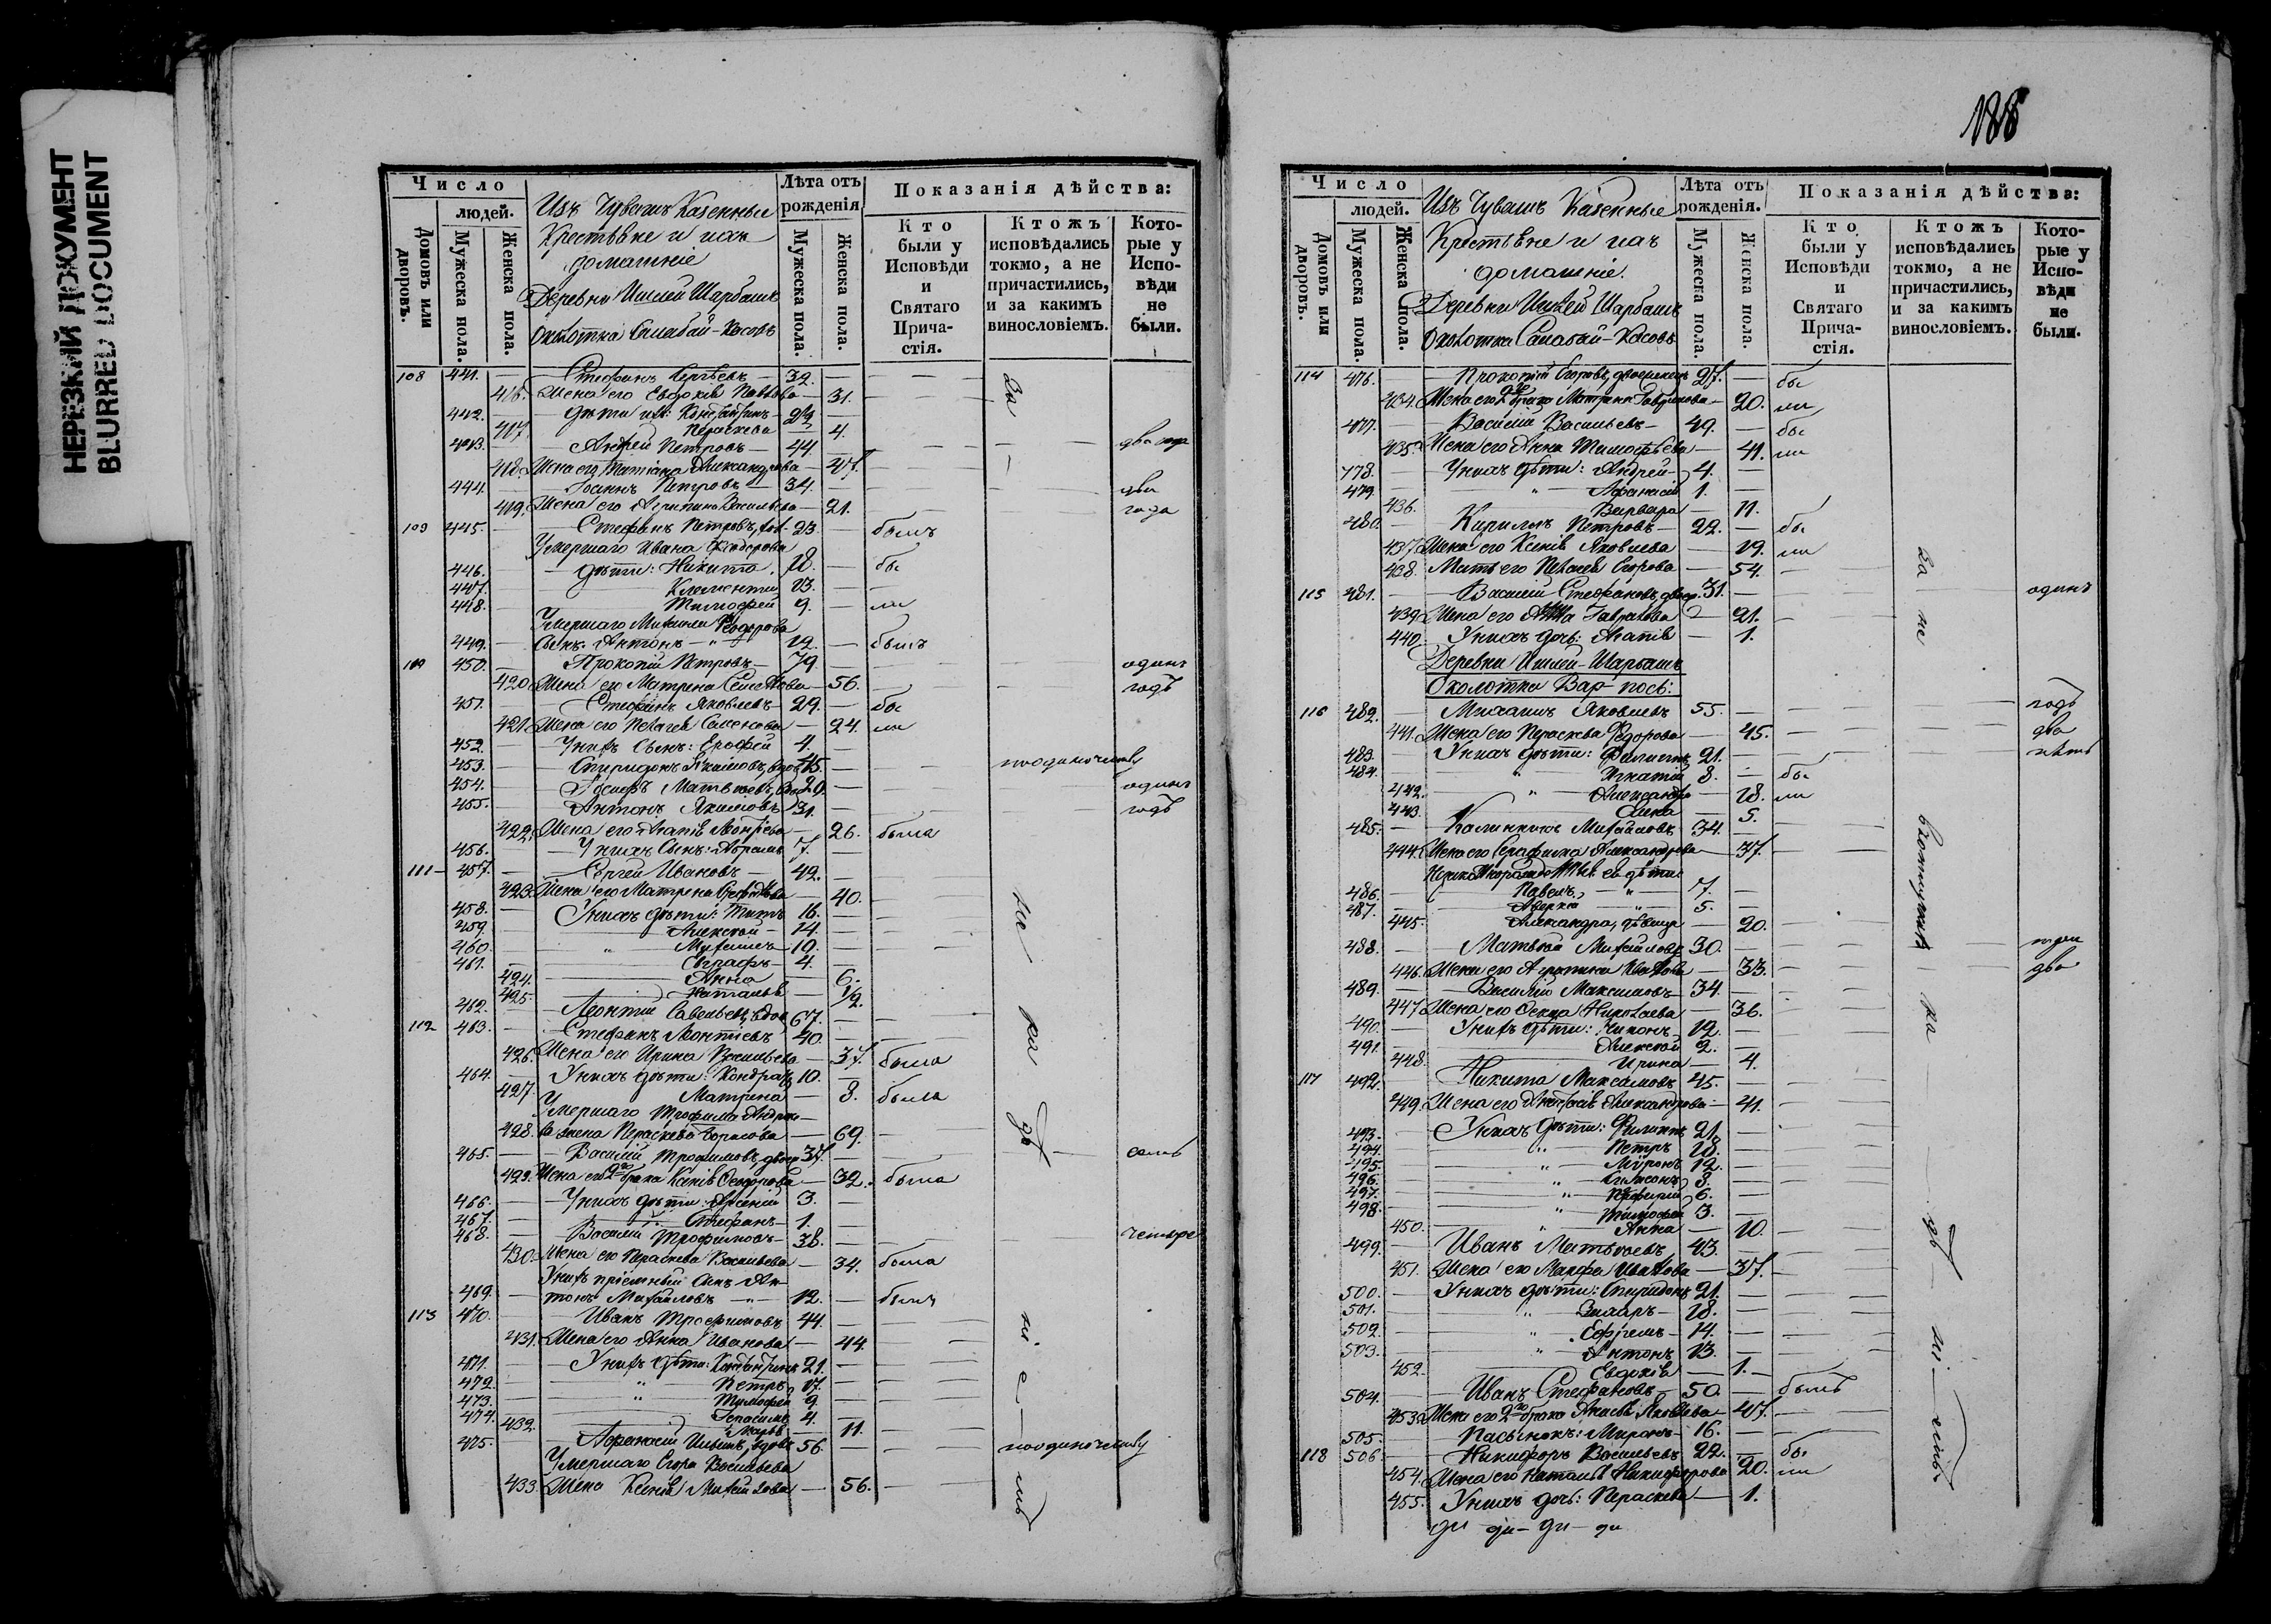 НЕРЕЗКИЙ ДОКУМЕНТ
BLURRED DOCUMENT
Число
людей.
Домовъ или дворовъ.
Мужеска пола.
Женска пола.
Изъ Чувашъ Казенные
Крестьяне и ихъ
домашніе
Деревни Ишлей Шарбашъ
Околотка
Лѣта отъ рожденія
Мужеска пола.
Женска пола.
Показанія дѣйства:
Кто были у Исповѣди и Святаго Прича-стія.
Ктожъ исповѣдались токмо, а не причастились, и за какимъ винословіемъ.
Кото-рые у Испо-вѣди не были.
108 441. Стефанъ Сергѣевъ 32.
416. Жена его Евдокія Павлова 31.
442. дѣти ихъ: Константинъ
417. Параскева 4.
443. Андрей Петровъ 44.
418. Жена его Татіана Александрова 47.
444. Іоаннъ Петровъ 34.
419. Жена его Агрипина Васильева 21. года
109 445. Стефанъ Петровъ, 23. былъ
Умершаго Ивана Ѳеодорова
446. дѣти: Никита 18. бы
447. Климентій 13.
448. Тимофей 9. ли
Умершаго Михаила Ѳеодорова
449. Сынъ: Антонъ 12. былъ
110 450. Прокопій Петровъ 79. одинъ
420. Жена его Матрена 56. годъ
451. Стефанъ Яковлевъ 29. бы
421. Жена его Пелагея Семенова 24. ли
452. У нихъ Сынъ: Ерофей 4.
453. Спиридонъ Якимовъ, вдов. 45. поодиночеству
454. Іосифъ Матвѣевъ, 29. одинъ
455. Антонъ Якимовъ 31. годъ
422. Жена его Агапія Леонтіева 26. была
456. У нихъ Сынъ: Абрамъ 7.
111 457. Сергей Ивановъ 42.
423. Жена его Матрена 40.
458. У нихъ дѣти: Титъ 16.
459. Алексѣй 14.
460. Михаилъ 10.
461. Евграфъ 4.
424. Анна 6.
425. Наталья 1/2.
462. Леонтій Савельевъ, вдов. 67.
112 463. Стефанъ Леонтіевъ 40.
426. Жена его Ирина Васильева 37. была
464. У нихъ дѣти: Кондратъ 10.
427. Матрена 8. была
Умершаго Трофима Андрее-
428. ва жена Параскева Борисова 69.
465. Василій Трофимовъ, двоеж. 37. семь
429. Жена его 2го брака Ксенія Ѳеодорова 32. была
466. У нихъ дѣти: Арсеній 3.
467. Стефанъ 1.
468. Василій Трофимовъ 38. четыре
430. Жена его Параскева Васильева 34. была
У нихъ пріемный сынъ Ан-
469. тонъ Михайловъ 12. былъ
113 470. Иванъ Трофимовъ 44.
431. Жена его Анна Иванова 44.
471. У нихъ дѣти: Константинъ 21.
472. Петръ 17.
473. Тимофей 9.
474. Герасимъ 4.
432. Марья 11.
475. Аѳанасій Ильинъ, вдовъ 56. поодиночеству
Умершаго Егора Васильева
433. Жена Ксенія Михайлова 56.
188
Число
людей.
Домовъ или дворовъ.
Мужеска пола.
Женска пола.
Изъ Чувашъ Казенные
Крестьяне и ихъ
домашніе.
Деревни Ишлей Шарбашъ
Околотка
Лѣта отъ рожденія.
Мужеска пола.
Женска пола.
Показанія дѣйства:
Кто были у Исповѣди и Святаго Прича-стія.
Ктожъ исповѣдались токмо, а не причастились, и за какимъ винословіемъ.
Кото-рые у Испо-вѣди не были.
114 476. Прокопій Егоровъ, двоеженецъ 27. бы
434. Жена его 2го брака Матрена Гаврилова 20. ли
477. Василій Васильевъ 49. бы
435. Жена его Анна Тимофѣева 41. ли
478. У нихъ дѣти: Андрей 4.
479. Аѳанасій 1.
436. Варвара 11.
480. Кириллъ Петровъ 22. бы
437. Жена его Ксенія Яковлева 19. ли
438. Мать его Пелагея Егорова 54.
115 481. Василій Стефановъ, двоеж. 31. одинъ
439. Жена его Анна Гаврилова 21.
440. У нихъ дочь: Агапія 1.
Деревни Ишлей-Шарбашъ
Околотка Вар-посъ:
116 482. Михаилъ Яковлевъ 55. годъ
441. Жена его Параскева Ѳедорова 45. два
483. У нихъ дѣти: Филиппъ 21.
484. Игнатій 8. бы
442. Александра 18. ли
443. Анна 5.
485. Калинникъ Михайловъ 34.
444. Жена его Серафима Александрова 37.
486. Павелъ 7.
487. Аверкій 5.
445. Александра, дѣвица 20.
488. Матвѣй Михайловъ 30. три
446. Жена его Агрипина Иванова 33. два
489. Василій Максимовъ 34.
447. Жена его Ѳекла Николаева 36.
490. У нихъ дѣти: 12.
491. Алексѣй 2.
448. Ирина 4.
117 492. Никита Максимовъ 45.
449. Жена его Анастасія Александрова 41.
493. У нихъ дѣти: Филиппъ 21.
494. Петръ 18.
495. Миронъ 12.
496. 8.
497. Порфирій 6.
498. Тимофей 3.
450. Анна 10.
499. Иванъ Матвѣевъ 43.
451. Жена его Марфа Иванова 37.
500. У нихъ дѣти: Спиридонъ 21.
501. Захаръ 18.
502. Ефремъ 14.
503. Антонъ 13.
452. Евдокія 1.
504. Иванъ Стефановъ 50. былъ
453. Жена его 2го брака Яковлева 47.
505. Пасынокъ: Миронъ 16.
118 506. Никифоръ Васильевъ 22. бы
454. Жена его Наталья Никифорова 20. ли
455. У нихъ дочь: Параскева 1.